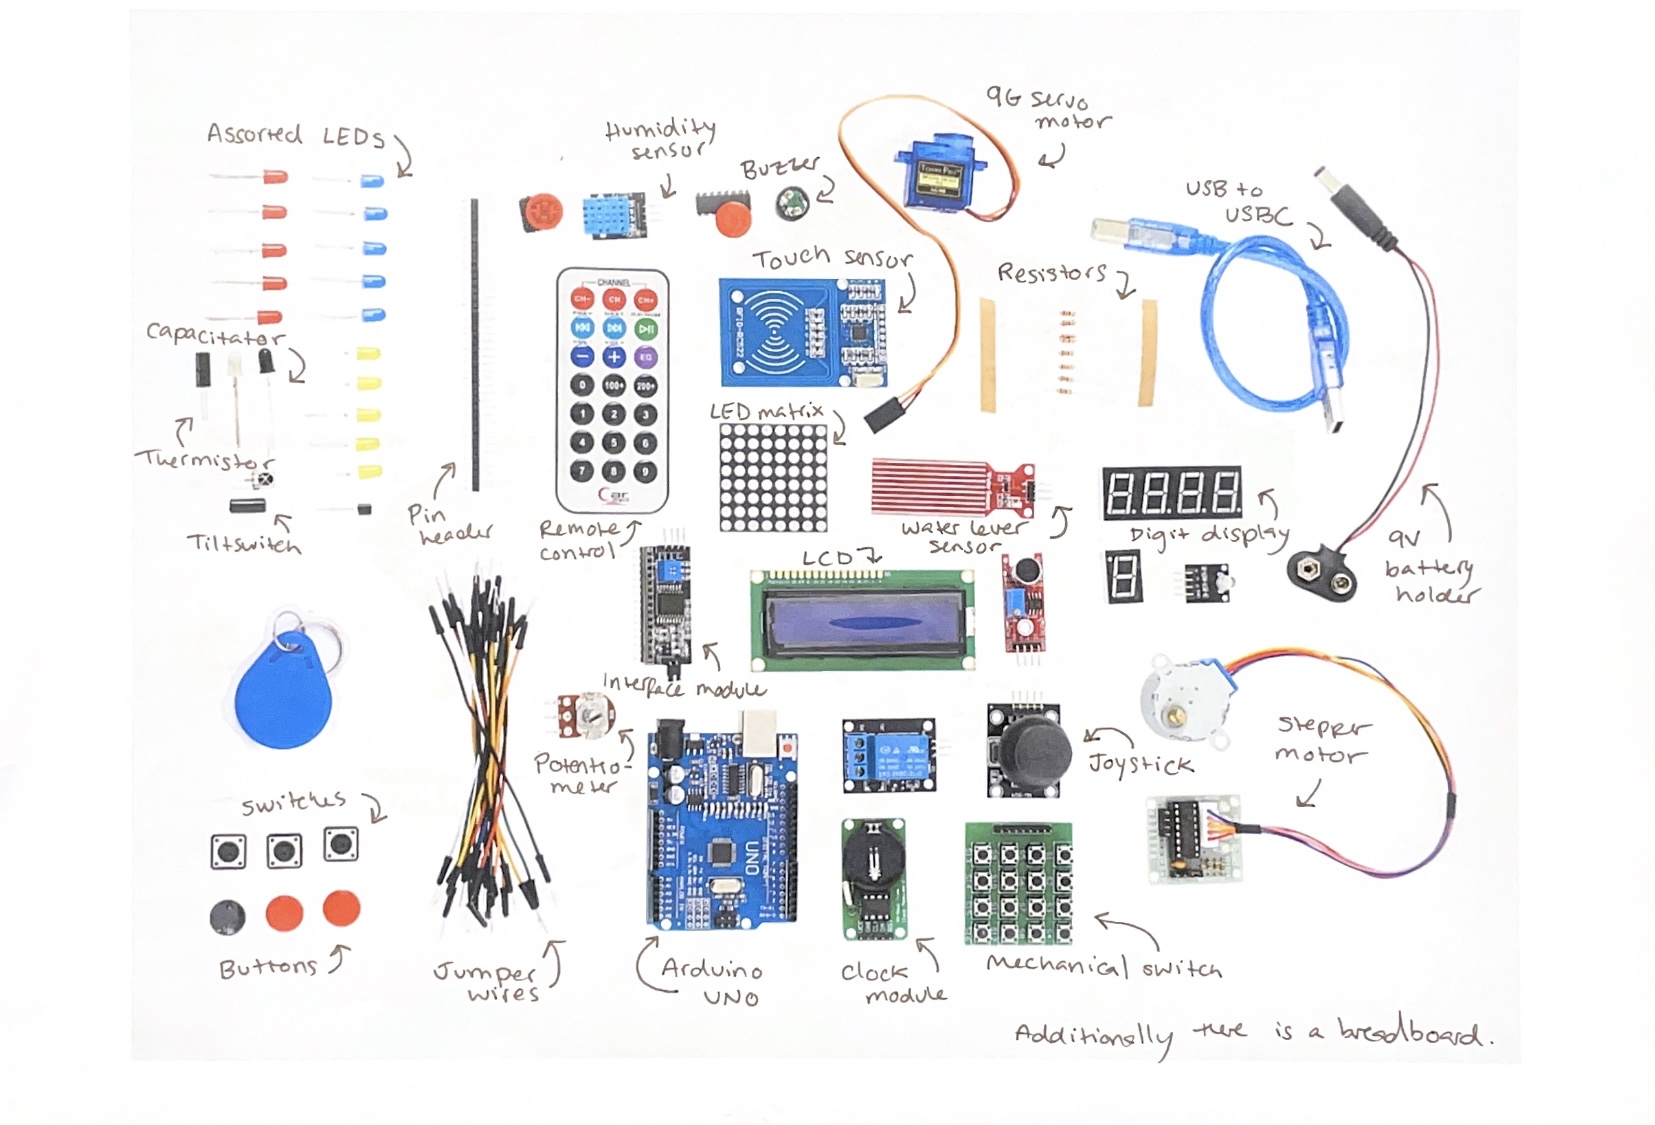 9G servo
motor
Assorted LEDs
Humidity
sensor
Buzzer
USB to
USBC
Touch sensor
Resistors
CHANNEL
CH-
CH
CH+
EQ
0
100+
200+
1
2
3
4
5
6
7
8
9
Car
RFID-RC522
Capacitator
Thermistor
Tiltswitch
Pin
header
Remote
control
LED matrix
Water lever
sensor
Digit display
9V
battery
holder
LCD
Interface module
Potentio-
meter
UNO
Joystick
Stepper
motor
Switches
Buttons
Jumper
wires
Arduino
UNO
Clock
module
Mechanical switch
Additionally there is a breadboard.